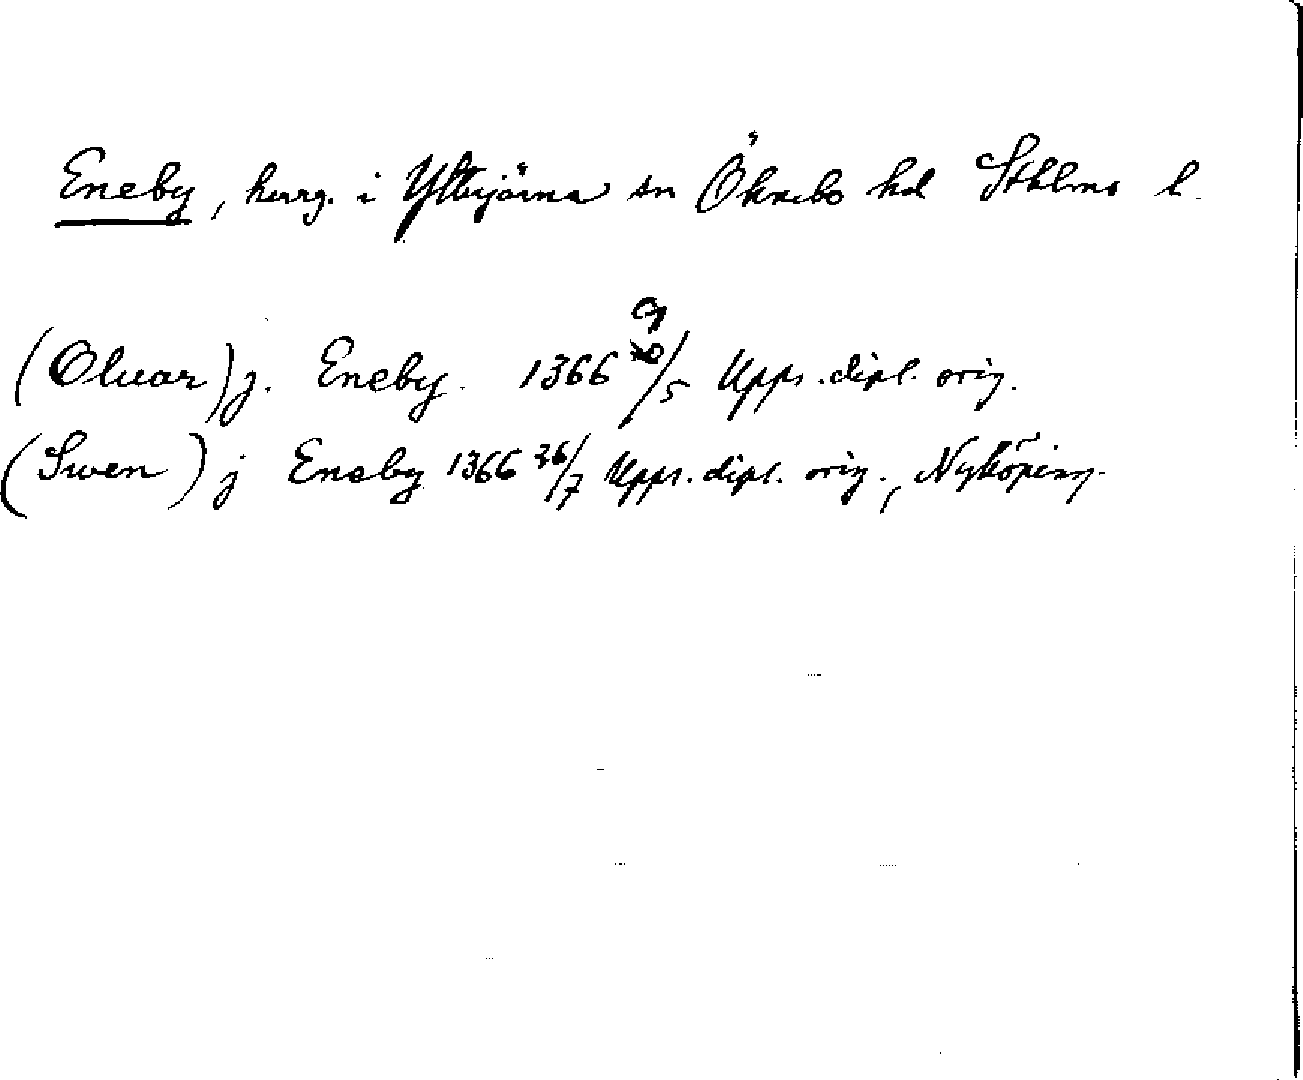 Eneby, herrg. i Ytterjärna sn Öknebo hd Sthlms l.
(Oluar) j. Eneby. 1366 9/5 Upps. dipl. orig.
(Swen) j Eneby 1366 26/7 Upps. dipl. orig., Nyköping.